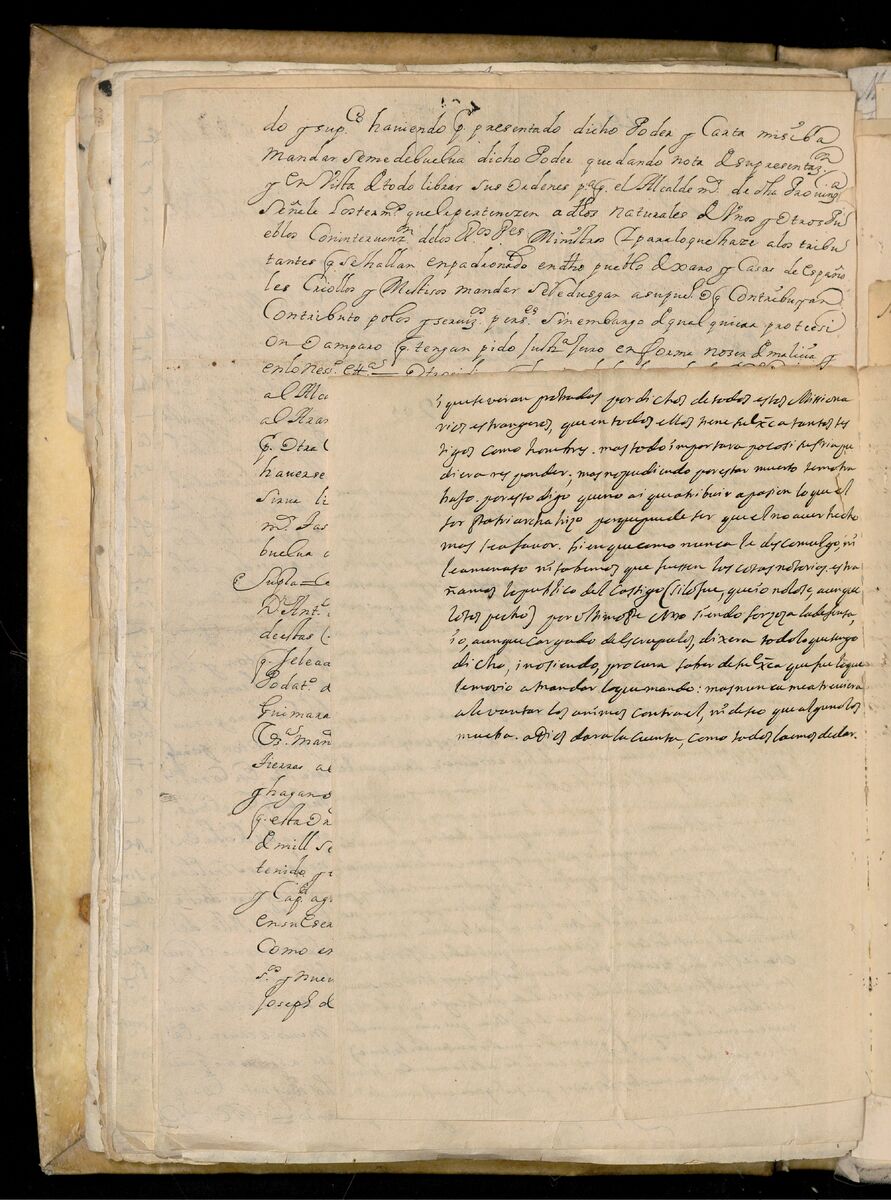 do y sup.co haviendo q. presentado dicho Poder y Carta mis.ba
Mandar seme debuelva dicho Poder quedando nota de su presentaz.n
y en Vista de todo librar sus Ordenes p.a q. el Alcalde m.r de dha Provinz.a
Señale los term.s que le pertenezen a dhos naturales de Vños y Otros Pu
eblos Con interuenz.n delos R.dos P.es Ministros Y para lo que haze a los tribu
tantes q. se hallan enpadronado en dho pueblo de xaro y Casas de Españo
les Criollos y Mestisos mandar se reduzgan a su pueblo y q Contribuyan
Con tributo polos y seruiz.os pers.es Sin embargo de qual quiera protecsi
on o amparo q. tengan pido Just.a Juro en forma no ser de malicia y
en lo nes.o etta.
al Alca
al Aran
q. Otra
hauerse
Sirua li
m.d Jas
buelua
Supla
D.n Ant.o
de estas
q. sele
Podat.o
Guimara
Gr.s man
tierras
y hagan
q. esta
de mill se
tenido y
y Cap.n
en su
Como es
s.os y nuev
Joseph d
i que se veran probados por dichos de todos estos Missiona
rios estrangeros, que en todos ellos tiene su Exca tantos tes
tigos como hombres. mas todo importara poco si su Sria pu
diera responder; mas no pudiendo por estar muerto
bajo. por esto digo que no ai que atribuir a pasion lo que el
sor Patriarcha hizo porque puede ser que el no aver hecho
mas sea favor. bien que como nunca le descomulgo, ni
le amenazo ni sabemos que fuessen las cosas notorias. estra
ñamos lo publico del Castigo (si lo fue, que io no lo se, aunque
lo sospecho) por ultimo siendo forzosa la defensa,
io, aunque cargado de escrupulos, dixera todo lo que tengo
dicho, i no siendo, procura saber de su Exca que fue lo que
le movio a Mandar lo que mando: mas nunca me atreviera
a levantar los animos contra el, ni deseo que alguno los
mueba. a Dios dara la cuenta, como todos la emos de dar.